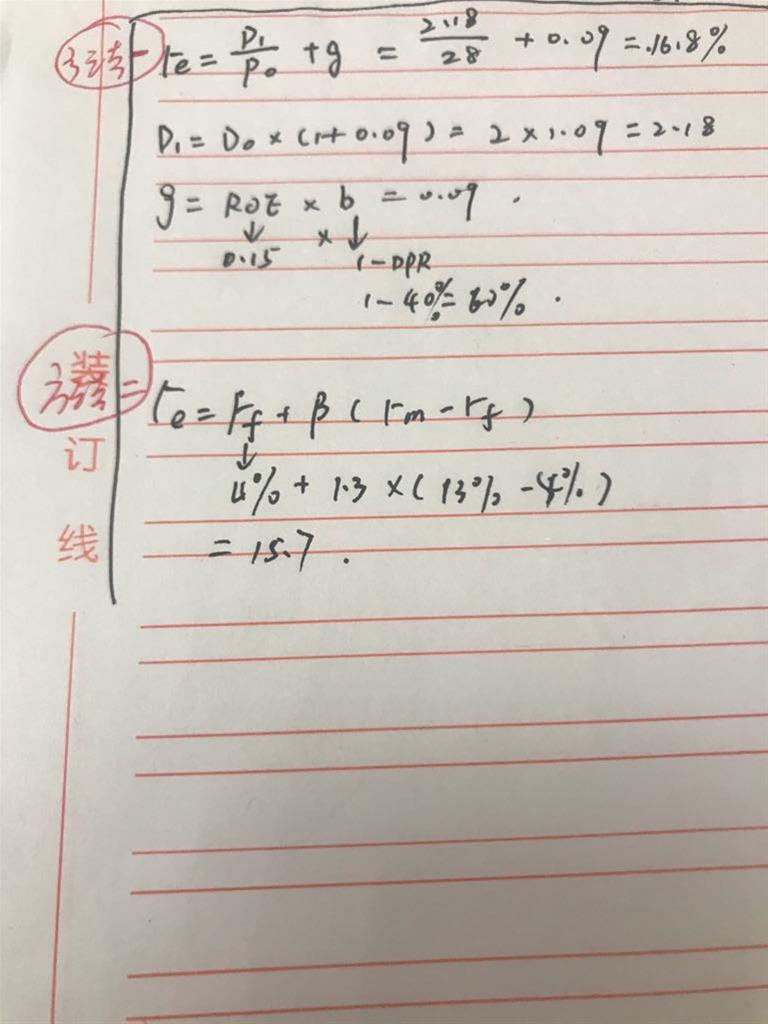 方法一 re = D₁/P₀ + g = 2.18/28 + 0.09 = 16.8%
D₁ = D₀ × (1+0.09) = 2 × 1.09 = 2.18
g = ROE × b = 0.09 .
↓ × ↓
0.15 1-DPR
1-40%=60% .
方法二 re = rf + β (rm - rf)
↓
4% + 1.3 × (13% - 4%)
= 15.7 .
装
订
线